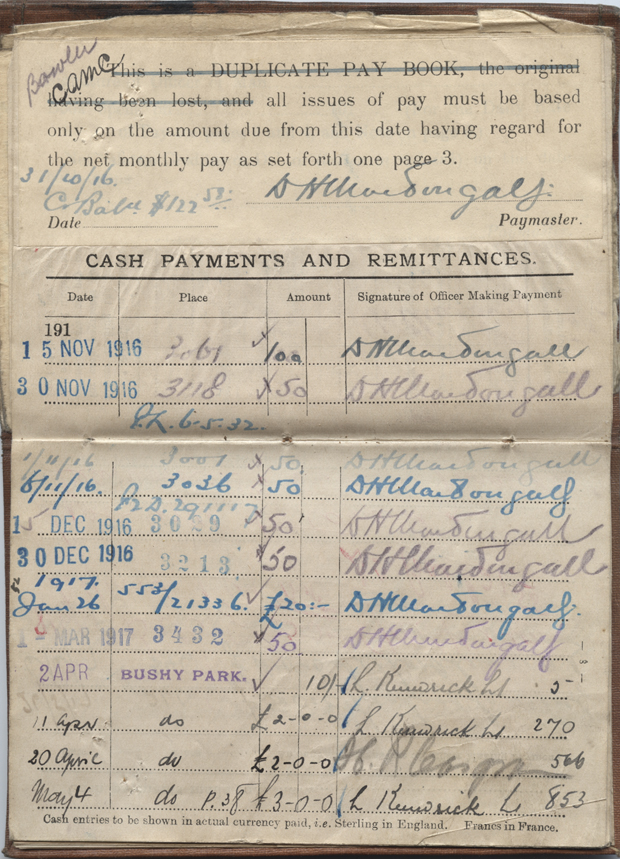 Bowler
CAMC
This is a DUPLICATE PAY BOOK, the original
having been lost, and all issues of pay must be based
only on the amount due from this date having regard for
the net monthly pay as set forth one page 3.
31/10/16.
C. Bal. $122 58. D H MacDougall.
Date Paymaster.
CASH PAYMENTS AND REMITTANCES.
Date Place Amount Signature of Officer Making Payment
191
15 NOV 1916 3061 100 D H MacDougall
30 NOV 1916 3118 50 D H MacDougall
6.5.32.
1/11/16 3001 50 D H MacDougall
6/11/16. 3036 50 D H MacDougall
291117
15 DEC 1916 3029 50 D H MacDougall
30 DEC 1916 3213 50 D H MacDougall
1917.
Jan 26 553/21336. £20:- D H MacDougall.
1 MAR 1917 3432 50 D H MacDougall
2 APR BUSHY PARK. 10/- L Kenwrick Lt 5
11 Apr. do £2-0-0 L Kenwrick Lt 270
20 April do £2-0-0 566
May 4 do P.38 £3-0-0 L Kenwrick Lt 853
Cash entries to be shown in actual currency paid, i.e. Sterling in England. Francs in France.